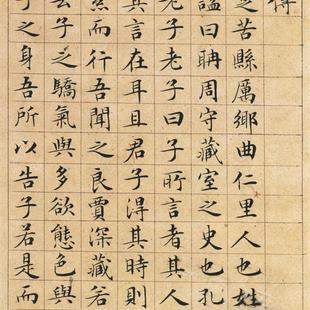 楚苦縣厲鄉曲仁里人也姓
謚曰聃周守藏室之史也孔
老子老子曰子所言者其人
其言在耳且君子得其時則
累而行吾聞之良賈深藏若
去子之驕氣與多欲態色與
子之身吾所以告子若是而